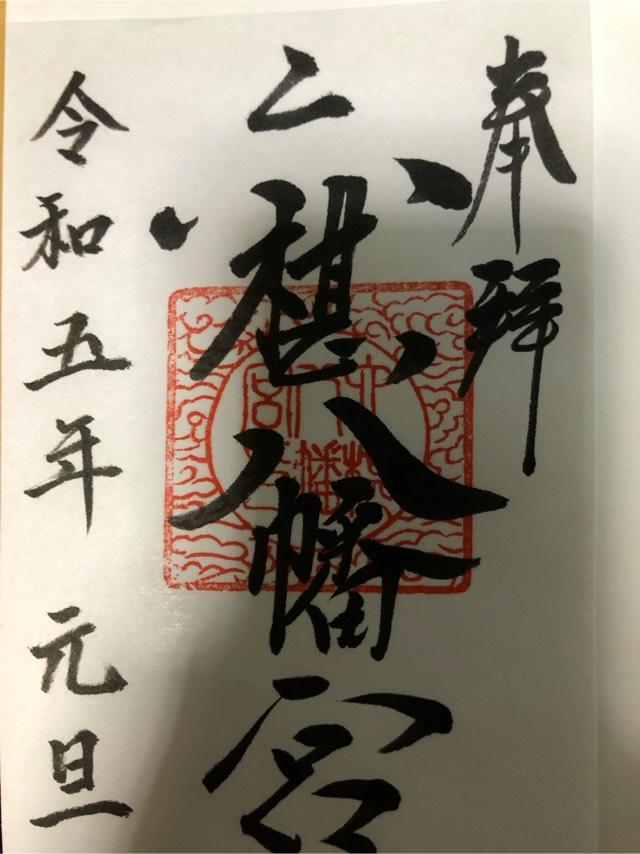 奉拝
二棋八幡宮
令和五年 元旦